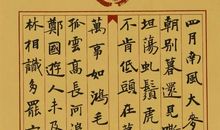 四月南風大麥
朝別暮還見嘶
坦蕩虬鬚虎
不肯低頭在
萬事如鴻毛
孤雲高長河
鄭國遊人未及
林相識多罷